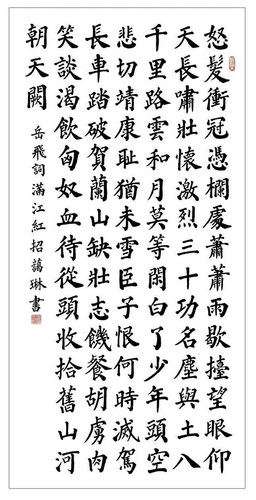 怒髮衝冠憑欄處蕭蕭雨歇擡望眼仰
天長嘯壯懷激烈三十功名塵與土八
千里路雲和月莫等閑白了少年頭空
悲切靖康耻猶未雪臣子恨何時滅駕
長車踏破賀蘭山缺壯志饑餐胡虜肉
笑談渴飲匈奴血待從頭收拾舊山河
朝天闕
岳飛詞滿江紅招藹琳書